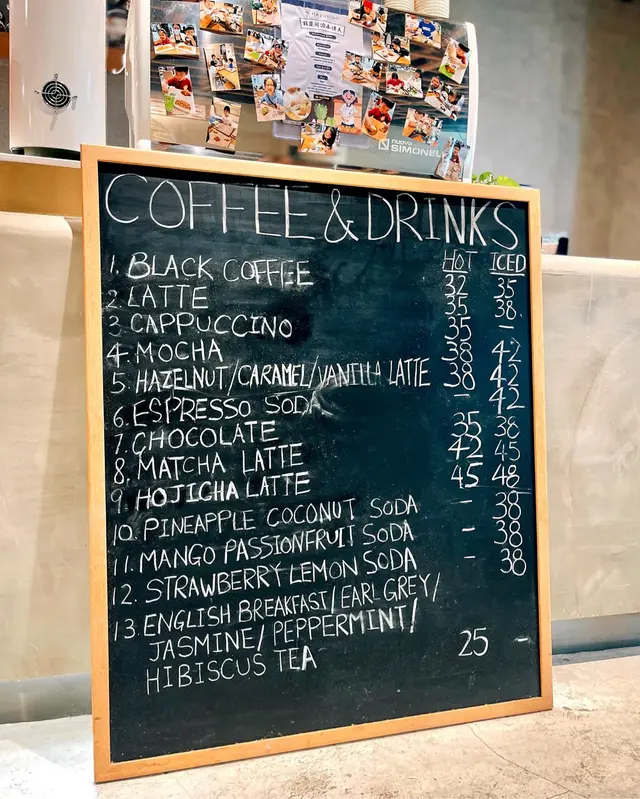 nuova
SIMONEL
COFFEE & DRINKS
HOT ICED
1. BLACK COFFEE 32 35
2. LATTE 35 38
3. CAPPUCCINO 35 -
4. MOCHA 38 42
5. HAZELNUT/CARAMEL/VANILLA LATTE 38 42
6. ESPRESSO SODA - 42
7. CHOCOLATE 35 38
8. MATCHA LATTE 42 45
9. HOJICHA LATTE 45 48
10. PINEAPPLE COCONUT SODA - 38
11. MANGO PASSIONFRUIT SODA - 38
12. STRAWBERRY LEMON SODA - 38
13. ENGLISH BREAKFAST/EARL GREY/
JASMINE/PEPPERMINT/
HIBISCUS TEA 25 -